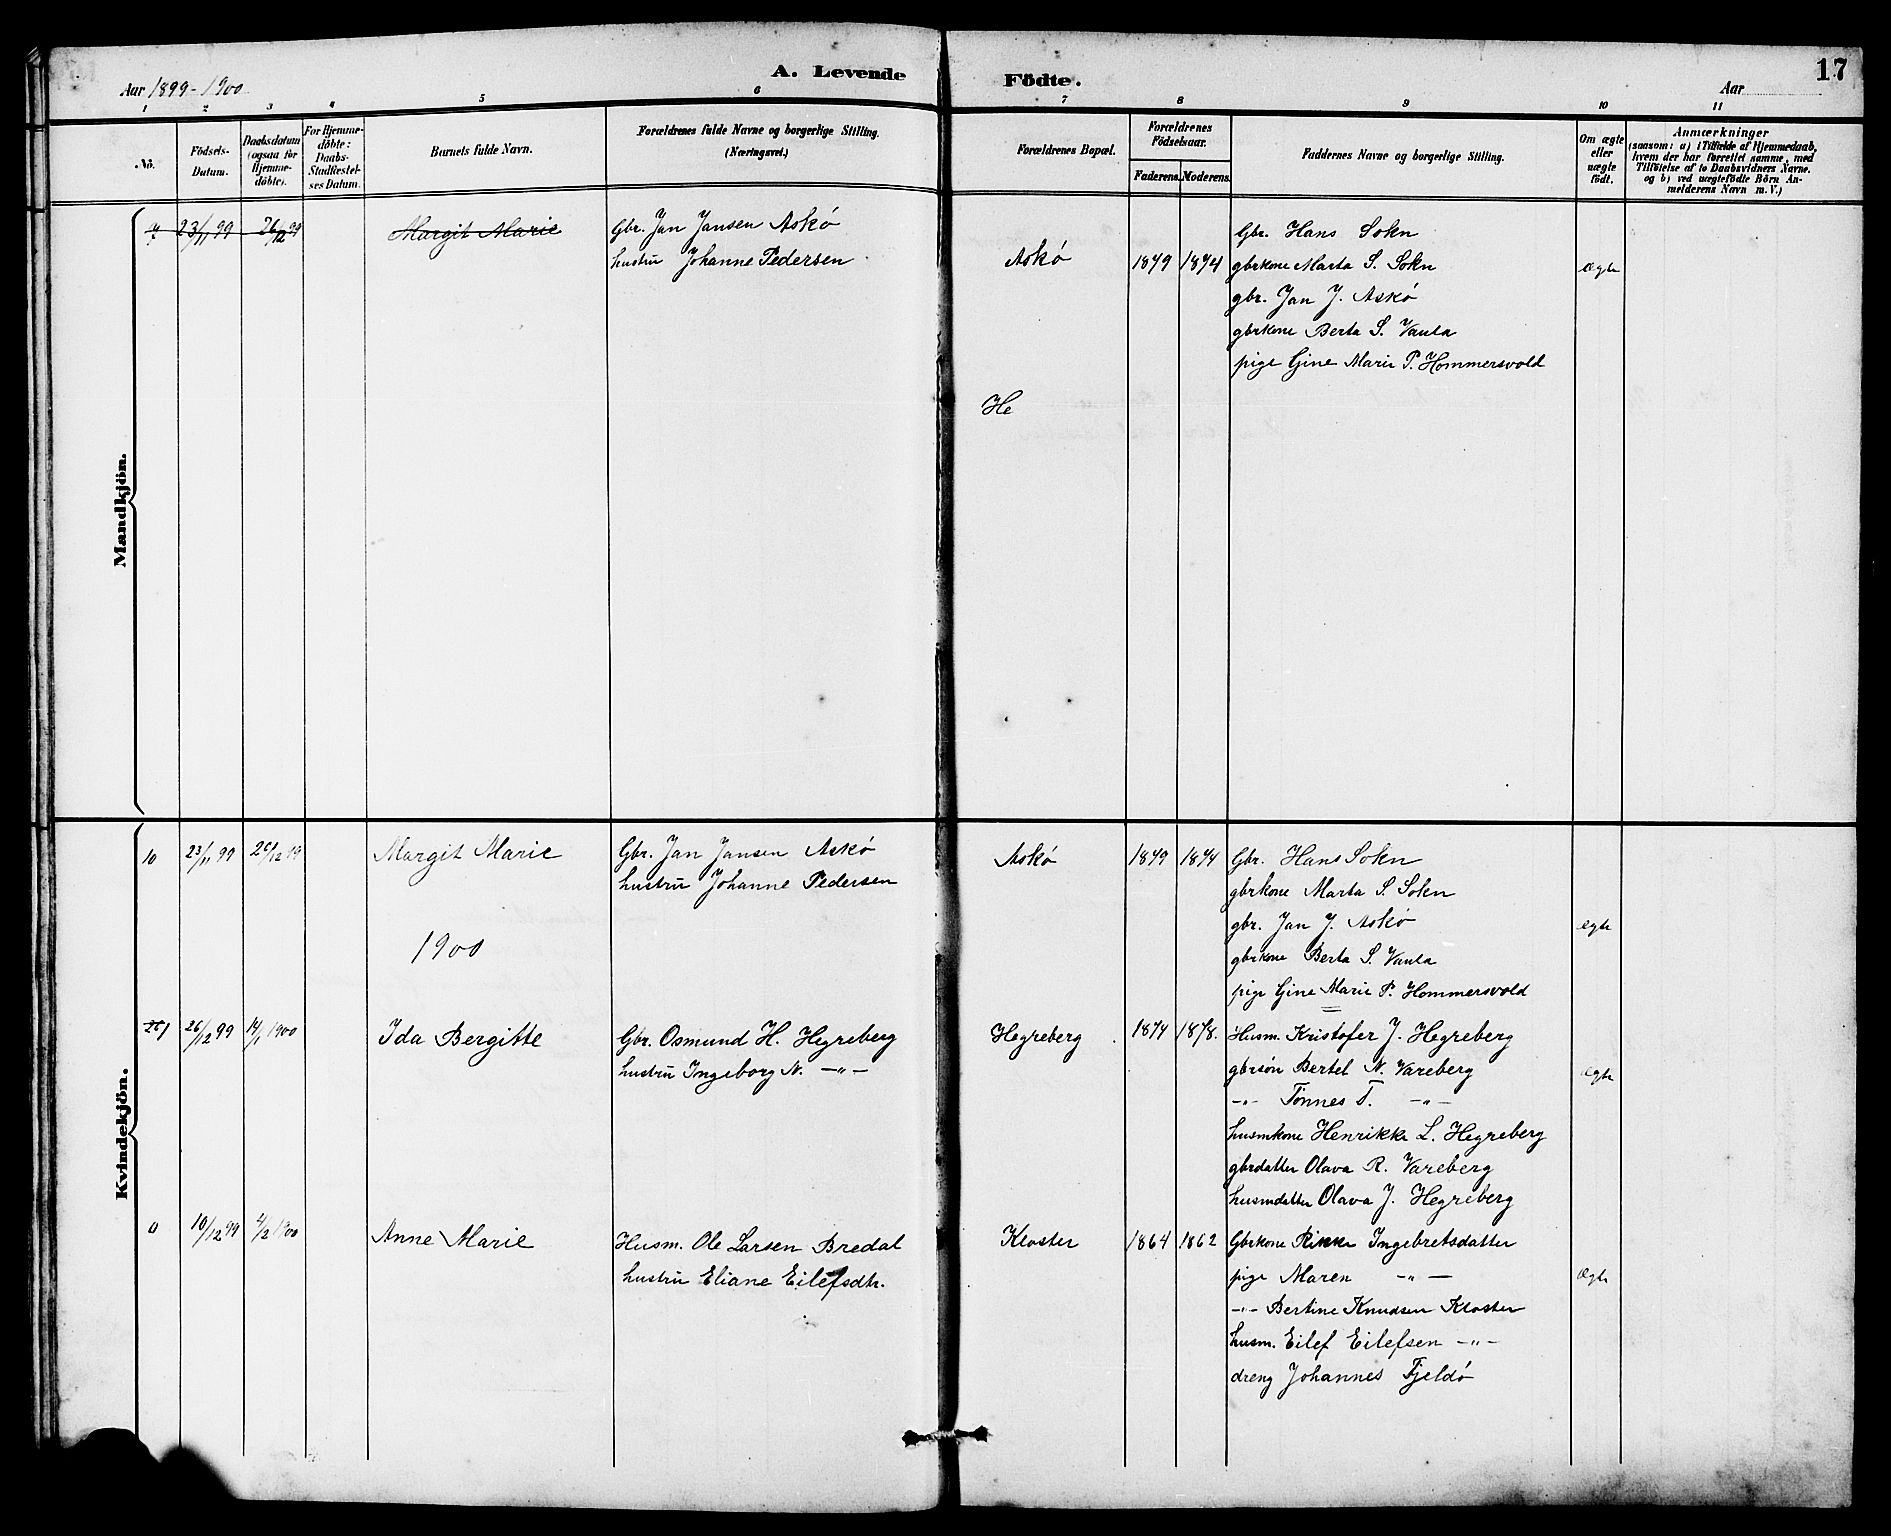 Aar 1899-1900
A. Levende Födte.
Aar
17
1 2 3 4 5 6 7 8 9 10 11
No.
Födsels-Datum.
Daabsdatum (ogsaa for Hjemme-döbte).
For Hjemme-döbte: Daabs-Stadfestel-ses Datum.
Barnets fulde Navn.
Forældrenes fulde Navne og borgerlige Stilling.
(Næringsvei.)
Forældrenes Bopæl.
Forældrenes Födselsaar.
Faderens. Moderens.
Faddernes Navne og borgerlige Stilling.
Om ægte eller uægte födt.
Anmærkninger
(saasom: a) i Tilfælde af Hjemmedaab,
hvem der har forrettet samme, med
Tilföielse af to Daabsvidners Navne.
og b) ved uægtefödte Börn An-
melderens Navn m. V.)
Mandkjön.
23/11 99 26/12 99 Margit Marie Gbr. Jan Jansen Askø
hustru Johanne Pedersen
Askø 1849 1874
Gbr. Hans Sokn
gbrkone Marta S. Sokn ægte
gbr. Jan J. Askø
gbrkone Berta S. Vaula
pige Gine Marie P. Hommersvold
He
Kvindekjön.
10 23/11 99 26/12 99 Margit Marie Gbr. Jan Jansen Askø
hustru Johanne Pedersen
Askø 1849 1874 Gbr. Hans Sokn
gbrkone Marta S. Sokn
gbr. Jan J. Askø ægte
gbrkone Berta S. Vaula
pige Gine Marie P. Hommersvold
1900
26/12 99 14/1 1900 Ida Bergitte Gbr. Osmund H. Hegreberg
hustru Ingeborg N. -"-
Hegreberg 1874 1878. Husm. Kristofer J. Hegreberg
gbrsøn Bertel N. Vareberg ægte
-"- Tønnes T. -"-
husmkone Henrikke L. Hegreberg
gbrdatter Olava R. Vareberg
husmdatter Olava J. Hegreberg
0 10/12 99 4/2 1900 Anne Marie Husm. Ole Larsen Bredal
hustru Eliane Eilefsdtr.
Kloster 1864 1862 Gbrkone Rikke Ingebretsdatter
pige Maren -"- ægte
-"- Bertine Knudsen Kloster
husm. Eilef Eilefsen -"-
dreng Johannes Fjeldø